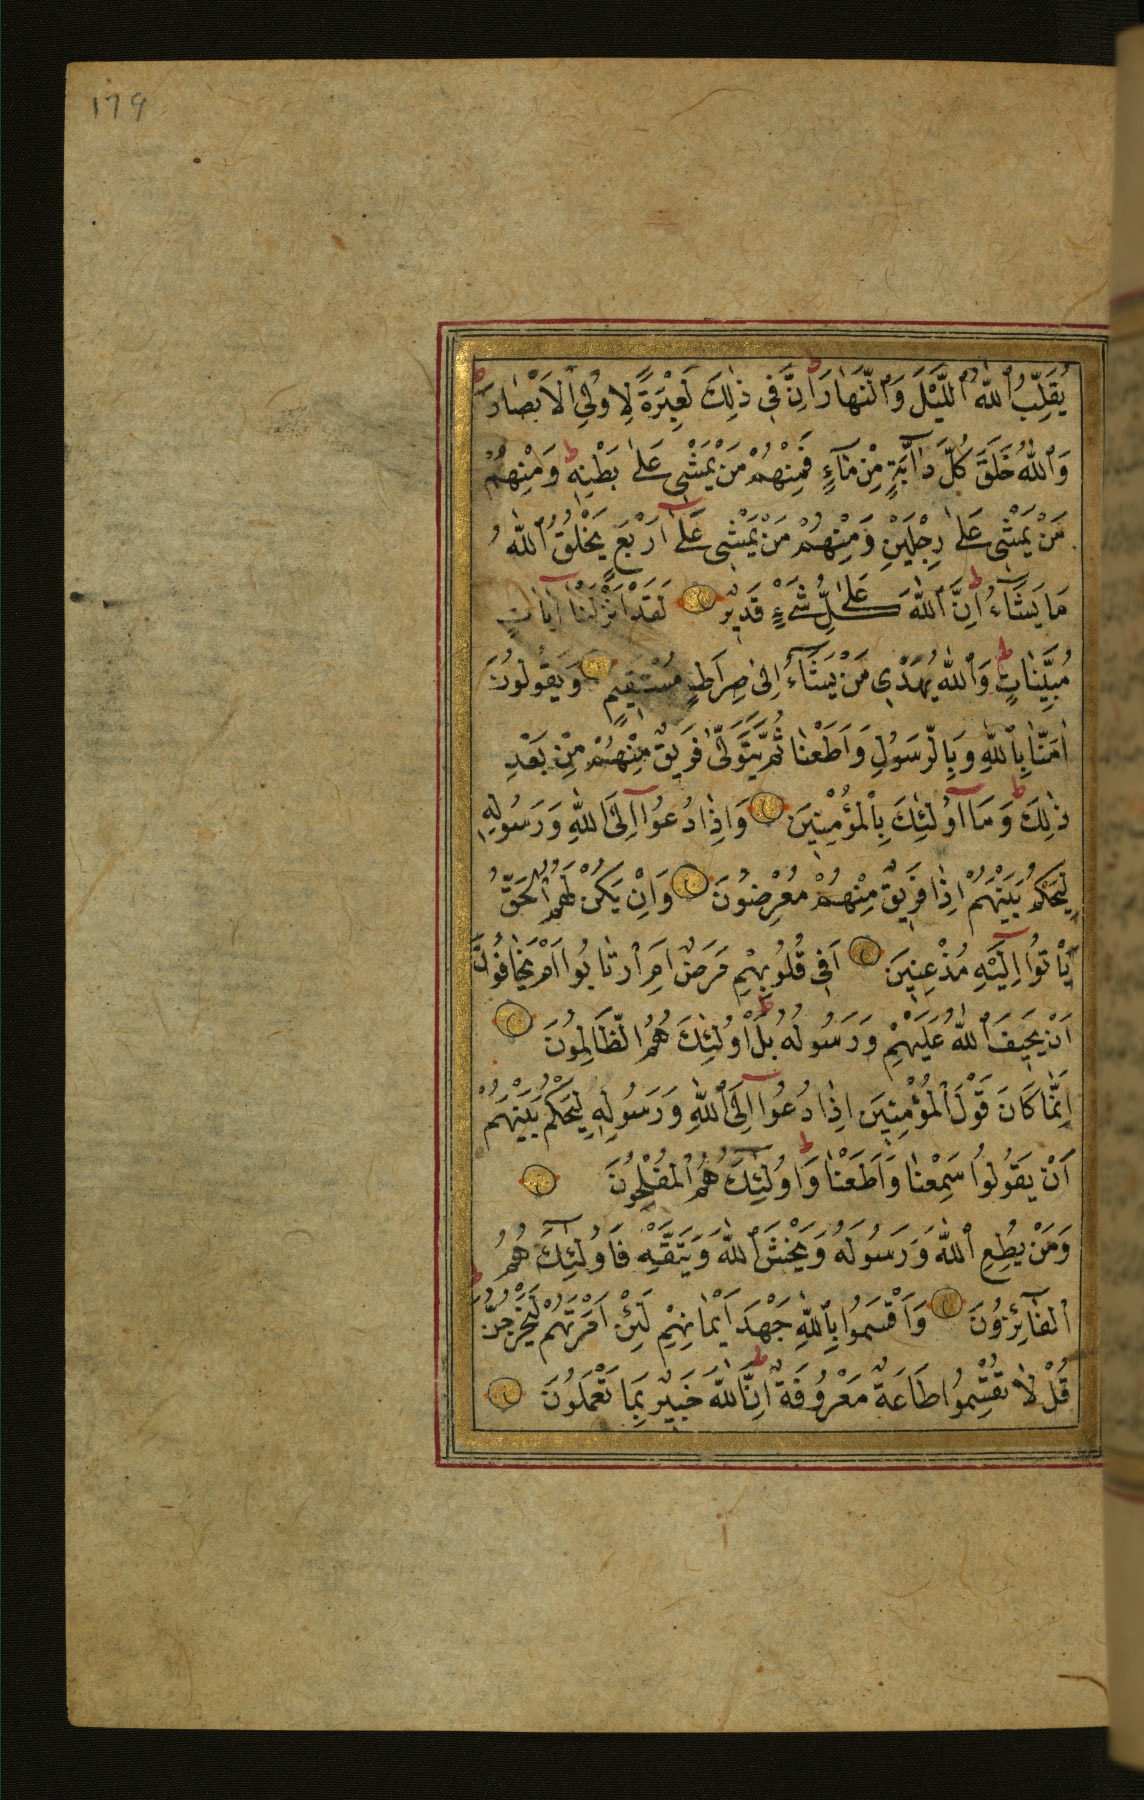 179
يُقَلِّبُ ٱللّٰهُ ٱللَّيْلَ وَٱلنَّهَارَ اِنَّ فِي ذٰلِكَ لَعِبْرَةً لِاُولِي ٱلْاَبْصَارِ
وَٱللّٰهُ خَلَقَ كُلَّ دَٓابَّةٍ مِنْ مَٓاءٍ فَمِنْهُمْ مَنْ يَمْشِي عَلٰى بَطْنِهٖ وَمِنْهُمْ
مَنْ يَمْشِي عَلٰى رِجْلَيْنِ وَمِنْهُمْ مَنْ يَمْشِي عَلٰٓى اَرْبَعٍ يَخْلُقُ ٱللّٰهُ
مَا يَشَٓاءُ اِنَّ ٱللّٰهَ عَلٰى كُلِّ شَيْءٍ قَدِيرٌ لَقَدْ اَنْزَلْنَٓا اٰيَاتٍ
مُبَيِّنَاتٍ وَٱللّٰهُ يَهْدِي مَنْ يَشَٓاءُ اِلٰى صِرَاطٍ مُسْتَقِيمٍ وَيَقُولُونَ
اٰمَنَّا بِٱللّٰهِ وَبِالرَّسُولِ وَاَطَعْنَا ثُمَّ يَتَوَلّٰى فَرِيقٌ مِنْهُمْ مِنْ بَعْدِ
ذٰلِكَ وَمَٓا اُولٰٓئِكَ بِٱلْمُؤْمِنِينَ وَاِذَا دُعُٓوا اِلَى ٱللّٰهِ وَرَسُولِهٖ
لِيَحْكُمَ بَيْنَهُمْ اِذَا فَرِيقٌ مِنْهُمْ مُعْرِضُونَ وَاِنْ يَكُنْ لَهُمُ ٱلْحَقُّ
يَأْتُٓوا اِلَيْهِ مُذْعِنِينَ اَفِي قُلُوبِهِمْ مَرَضٌ اَمِ ٱرْتَابُوا اَمْ يَخَافُونَ
اَنْ يَحِيفَ ٱللّٰهُ عَلَيْهِمْ وَرَسُولُهُ بَلْ اُولٰٓئِكَ هُمُ ٱلظَّالِمُونَ
اِنَّمَا كَانَ قَوْلَ ٱلْمُؤْمِنِينَ اِذَا دُعُٓوا اِلَى ٱللّٰهِ وَرَسُولِهٖ لِيَحْكُمَ بَيْنَهُمْ
اَنْ يَقُولُوا سَمِعْنَا وَاَطَعْنَا وَاُولٰٓئِكَ هُمُ ٱلْمُفْلِحُونَ
وَمَنْ يُطِعِ ٱللّٰهَ وَرَسُولَهُ وَيَخْشَ ٱللّٰهَ وَيَتَّقْهِ فَاُولٰٓئِكَ هُمُ
ٱلْفَٓائِزُونَ وَاَقْسَمُوا بِٱللّٰهِ جَهْدَ اَيْمَانِهِمْ لَئِنْ اَمَرْتَهُمْ لَيَخْرُجُنَّ
قُلْ لَا تُقْسِمُوا طَاعَةٌ مَعْرُوفَةٌ اِنَّ ٱللّٰهَ خَبِيرٌ بِمَا تَعْمَلُونَ